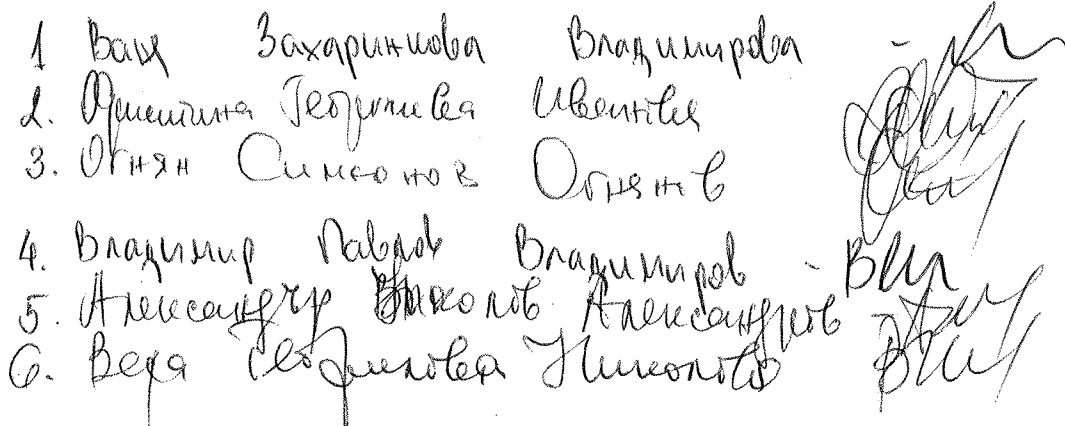 1 Ваня Захаринова Владимирова -
2. Георгиева Иванова
3. Огнян Симеонов Огнянов
4. Владимир Павлов Владимиров -
5. Александър Николов Александров -
6. Вера Николова